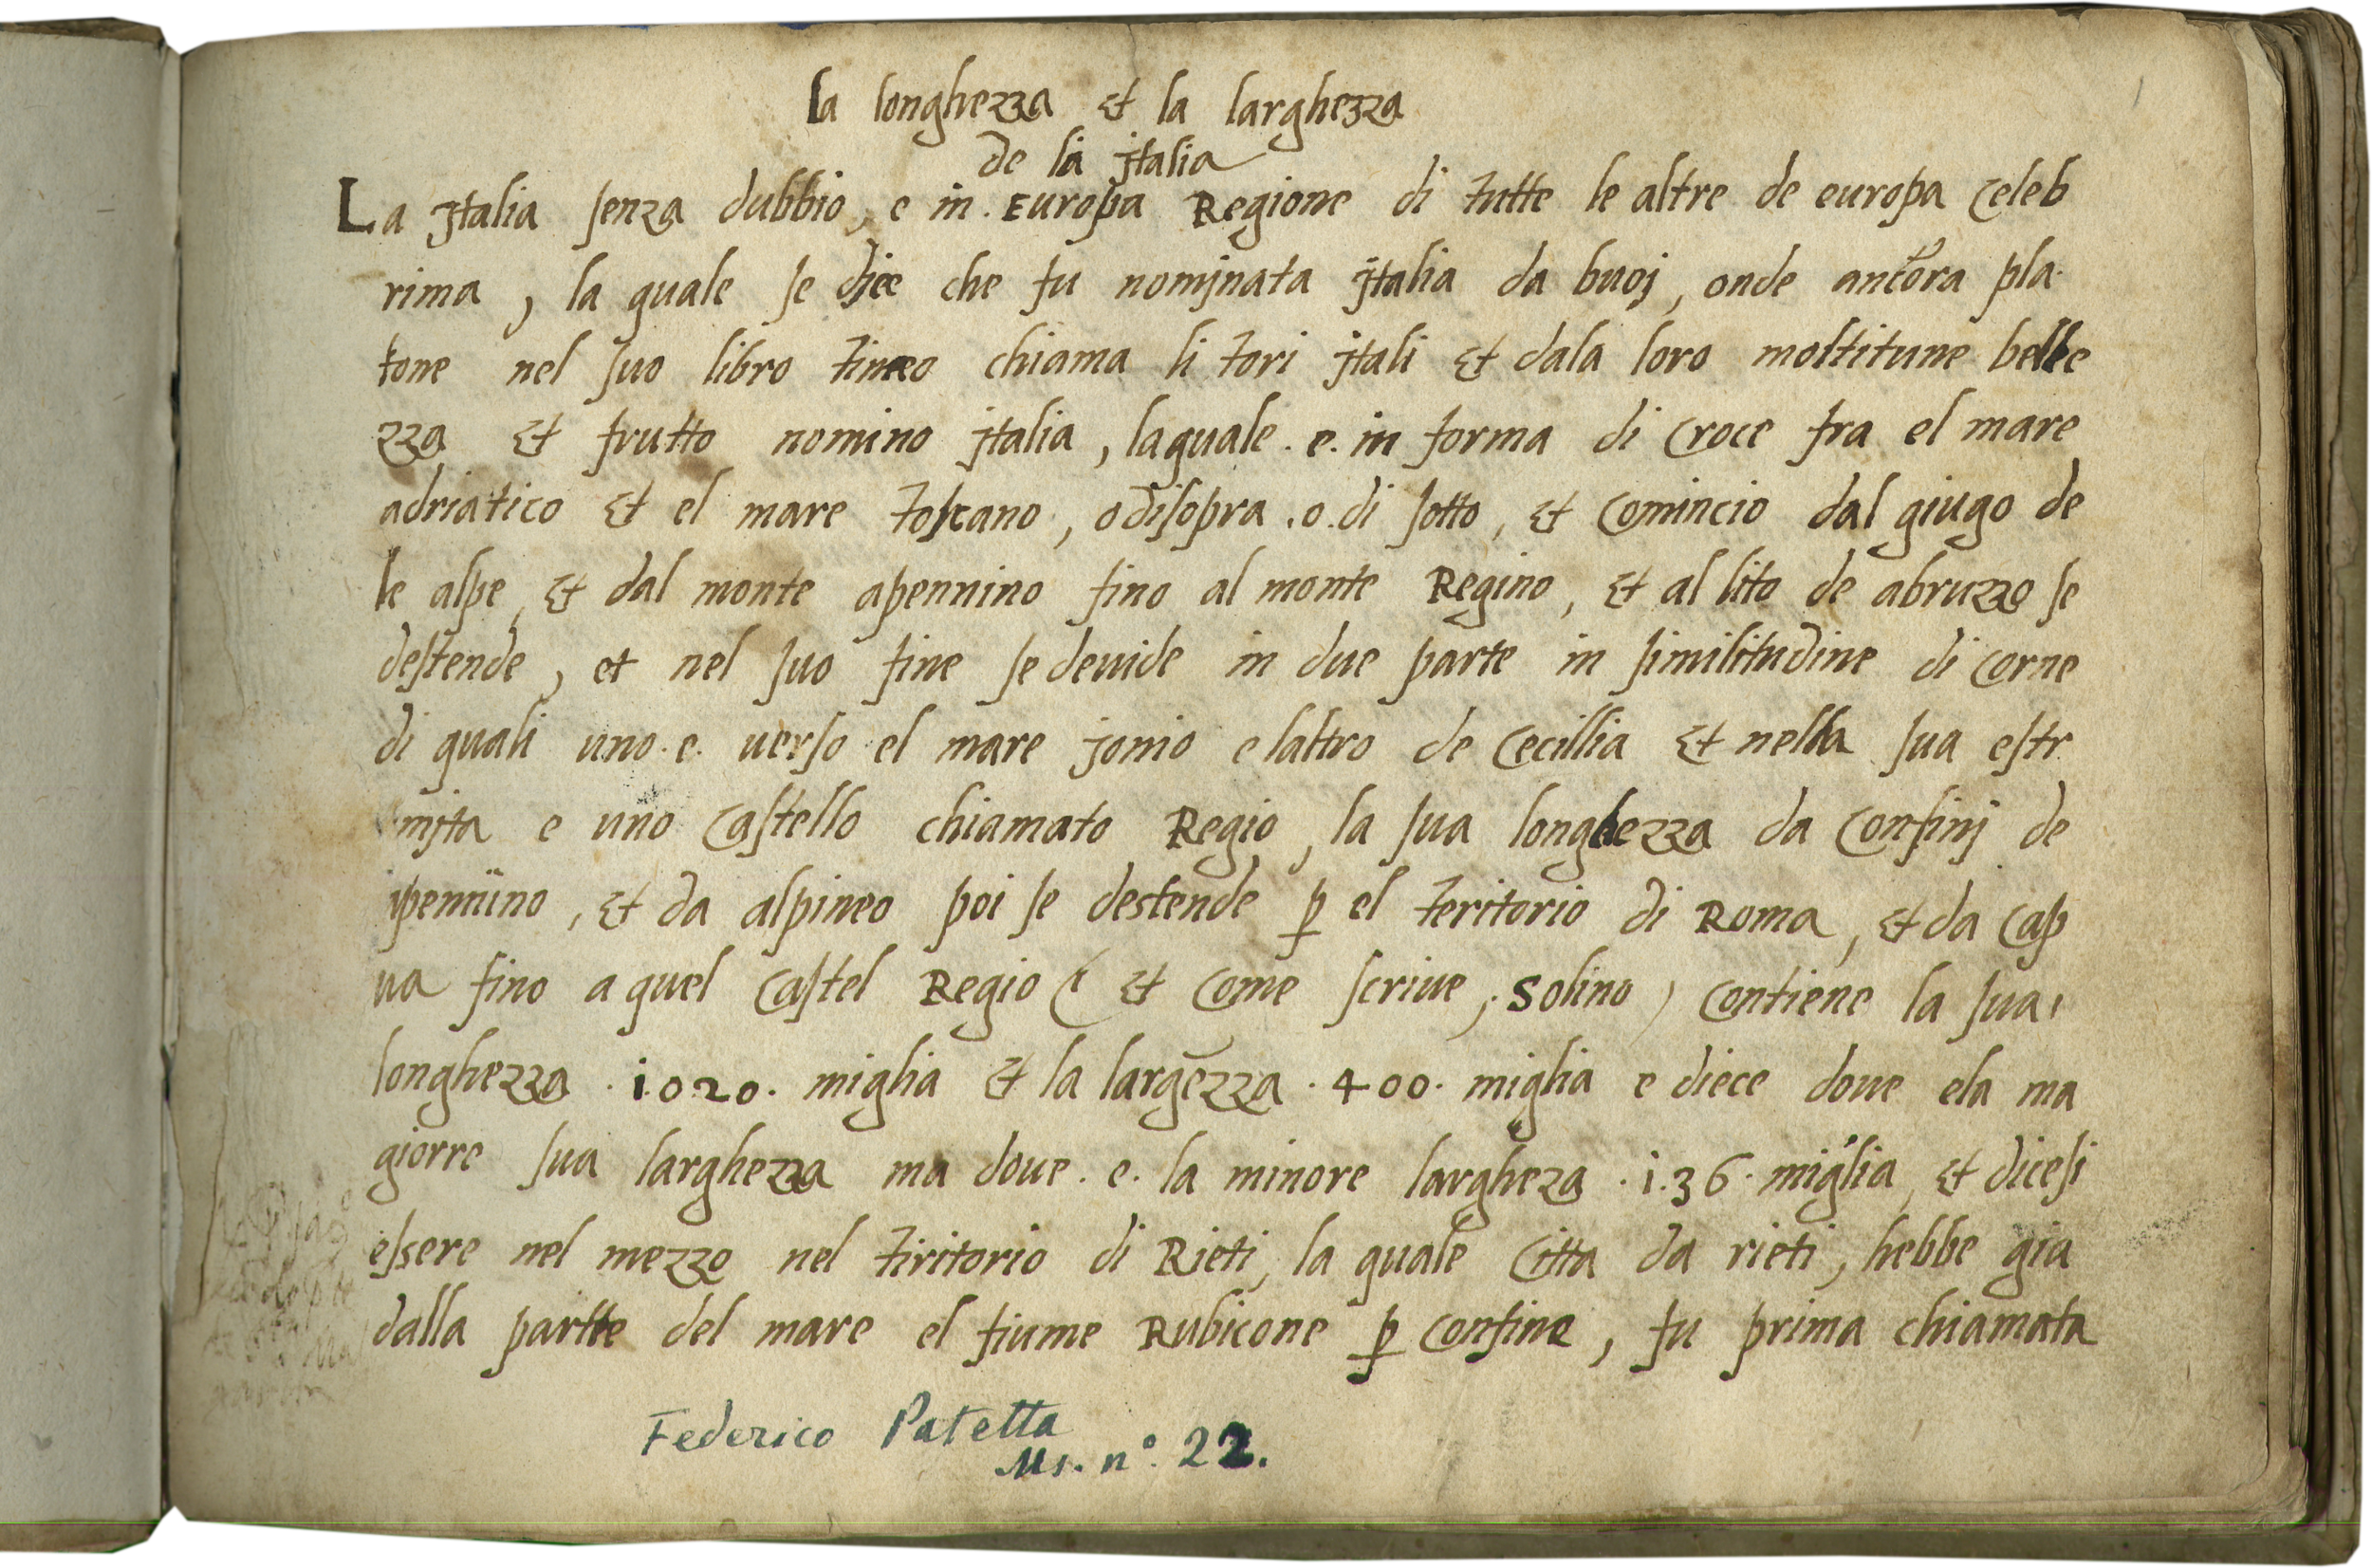 la longhezza & la larghezza
de la jtalia
La jtalia senza dubbio, e in. Europa Regione di tutte le altre de europa celeb
rima, la quale se dice che fu nomjnata jtalia da buoj, onde anchora pla
tone nel suo libro timeo chiama li tori jtali & dala loro moltitune belle
zza & frutto nomino jtalia, laquale. e. in forma di croce fra el mare
adriatico & el mare toscano, o disopra .o. di sotto, & comincio dal giugo de
le alpe, & dal monte apennino fino al monte Regino, & al lito de abruzzo se
destende, et nel suo fine se deuide in due parte in similitudine di corne
di quali uno. e. uerso el mare jonio e laltro de cecillia & nella sua estr
mjta e uno castello chiamato Regio, la sua longhezza da confinj de
apennino, & da alpineo poi se destende p el teritorio di Roma, & da cap
ua fino a quel castel Regio ( & come scriue, Solino ) contiene la sua
longhezza .1020. miglia & la largezza .400. miglia e diece doue ela ma
giorre sua larghezza ma doue. e. la minore largheza .136. miglia, & dicesi
essere nel mezzo nel tiritorio di Rieti, la quale citta da rieti, hebbe gia
dalla partte del mare el fiume Rubicone p confine, fu prima chiamata
Federico Patetta
Ms. n°. 22.